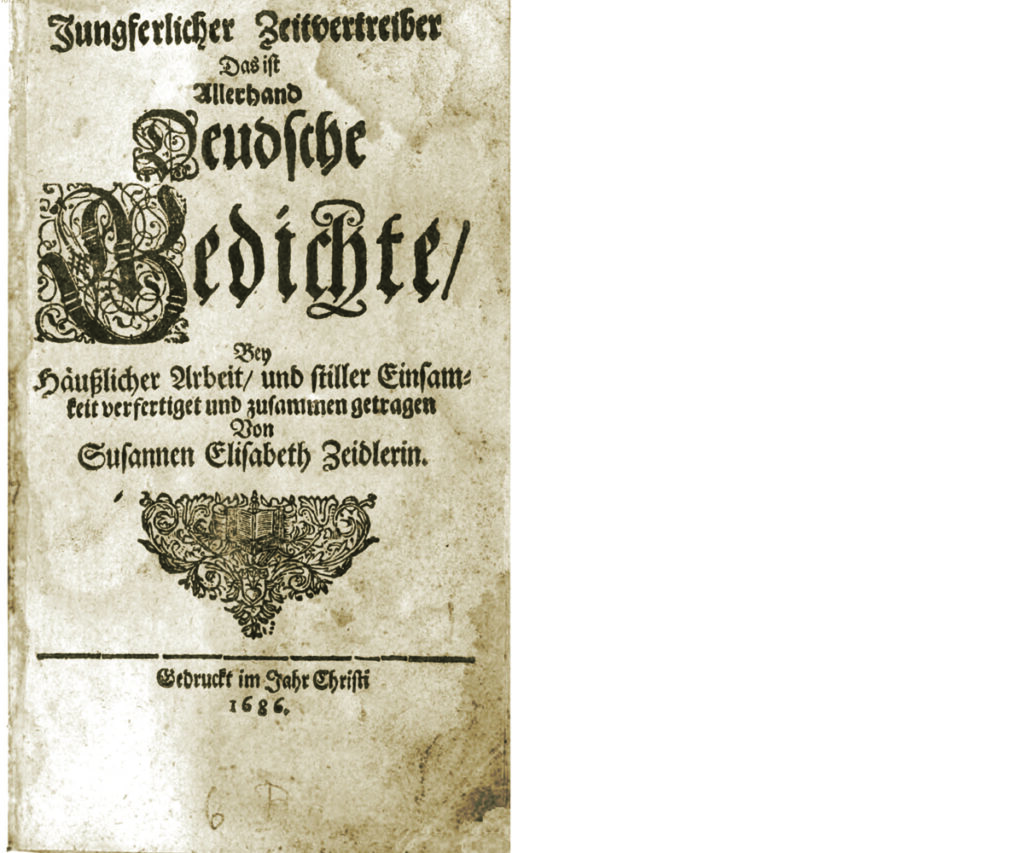 Jungferlicher Zeitvertreiber
Das ist
Allerhand
Deudsche
Gedichte/
Bey
Häußlicher Arbeit/ und stiller Einsam-
keit verfertiget und zusammen getragen
Von
Susannen Elisabeth Zeidlerin.
Gedruckt im Jahr Christi
1686.
6